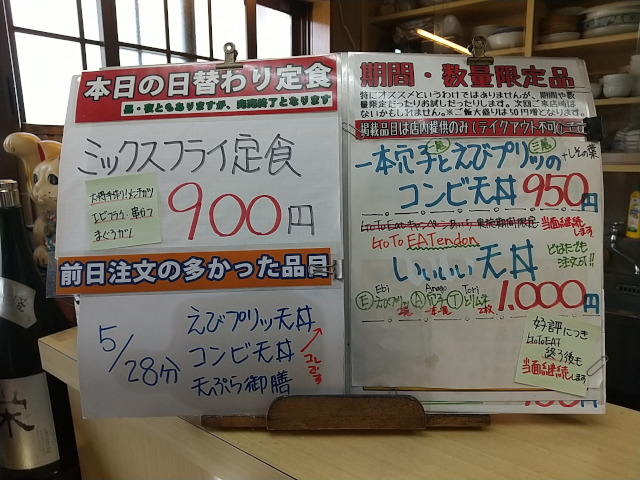 本日の日替わり定食
昼・夜ともありますが、完売終了となります
ミックスフライ定食
大将手作り!メンチカツ
エビフライ・串カツ
まぐろカツ
900円
前日注文の多かった品目
5/28分
えびプリッ天丼
コンビ天丼
天ぷら御膳
コレです
期間・数量限定品
特にオススメというわけではありませんが、期間や数
量限定だったりお試しだったりします。次回ご来店時は
ないかもしれません。※ご飯大盛りは50円増となります。
掲載品目は店内提供のみ(テイクアウト不可)
一本穴子とえびプリッの
+しその葉
コンビ天丼 950円
GoToEatキャンペーンあいち 実施期間限定
当面継続します
GoTo EATendon
いいいい天丼
どなたでも
注文可!!
Ebi Anago Tori
E えびプリッ 2尾 A 穴子 一本 T とりムネ 2枚
1,000円
好評につき
GoToEAT
終了後も
当面継続します